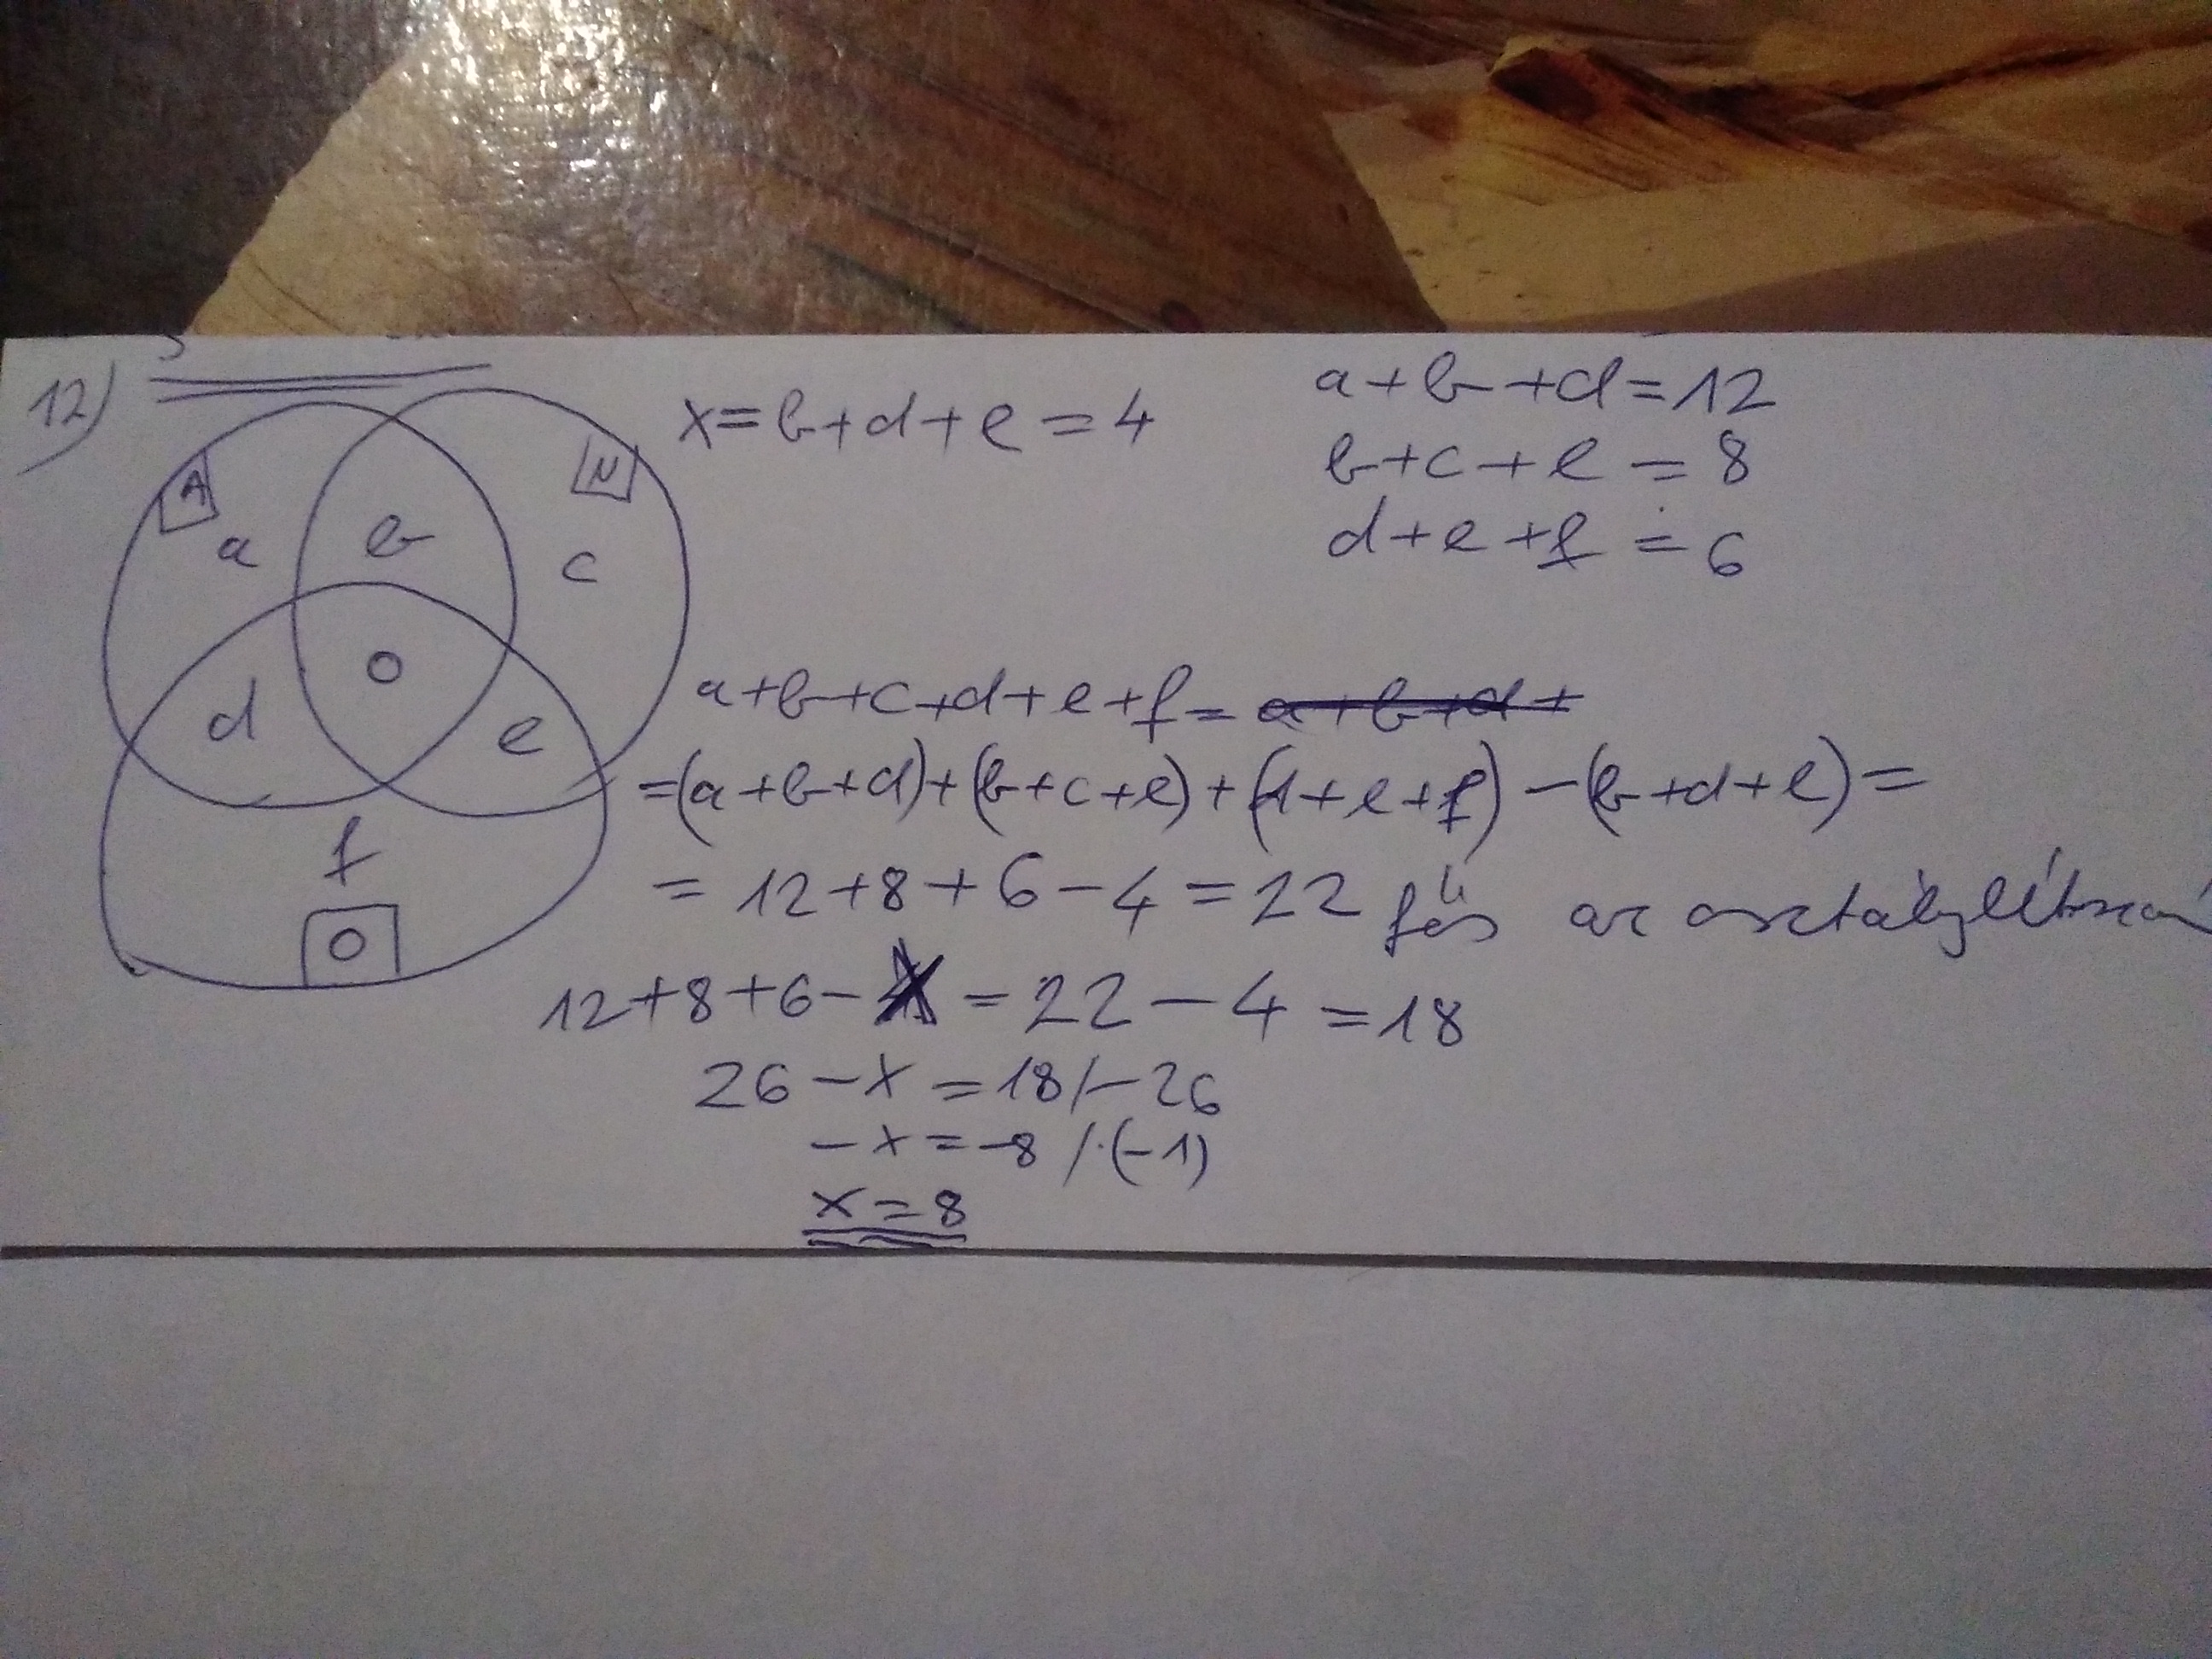 12)
A
N
a
b
c
o
d
e
f
O
x=b+d+e=4
a+b+d=12
b+c+e=8
d+e+f=6
a+b+c+d+e+f= a+b+d+
=(a+b+d)+(b+c+e)+(d+e+f)-(b+d+e)=
= 12+8+6-4=22 fős az osztálylétszám
12+8+6-X=22-4=18
26-x=18/-26
-x=-8/·(-1)
x=8